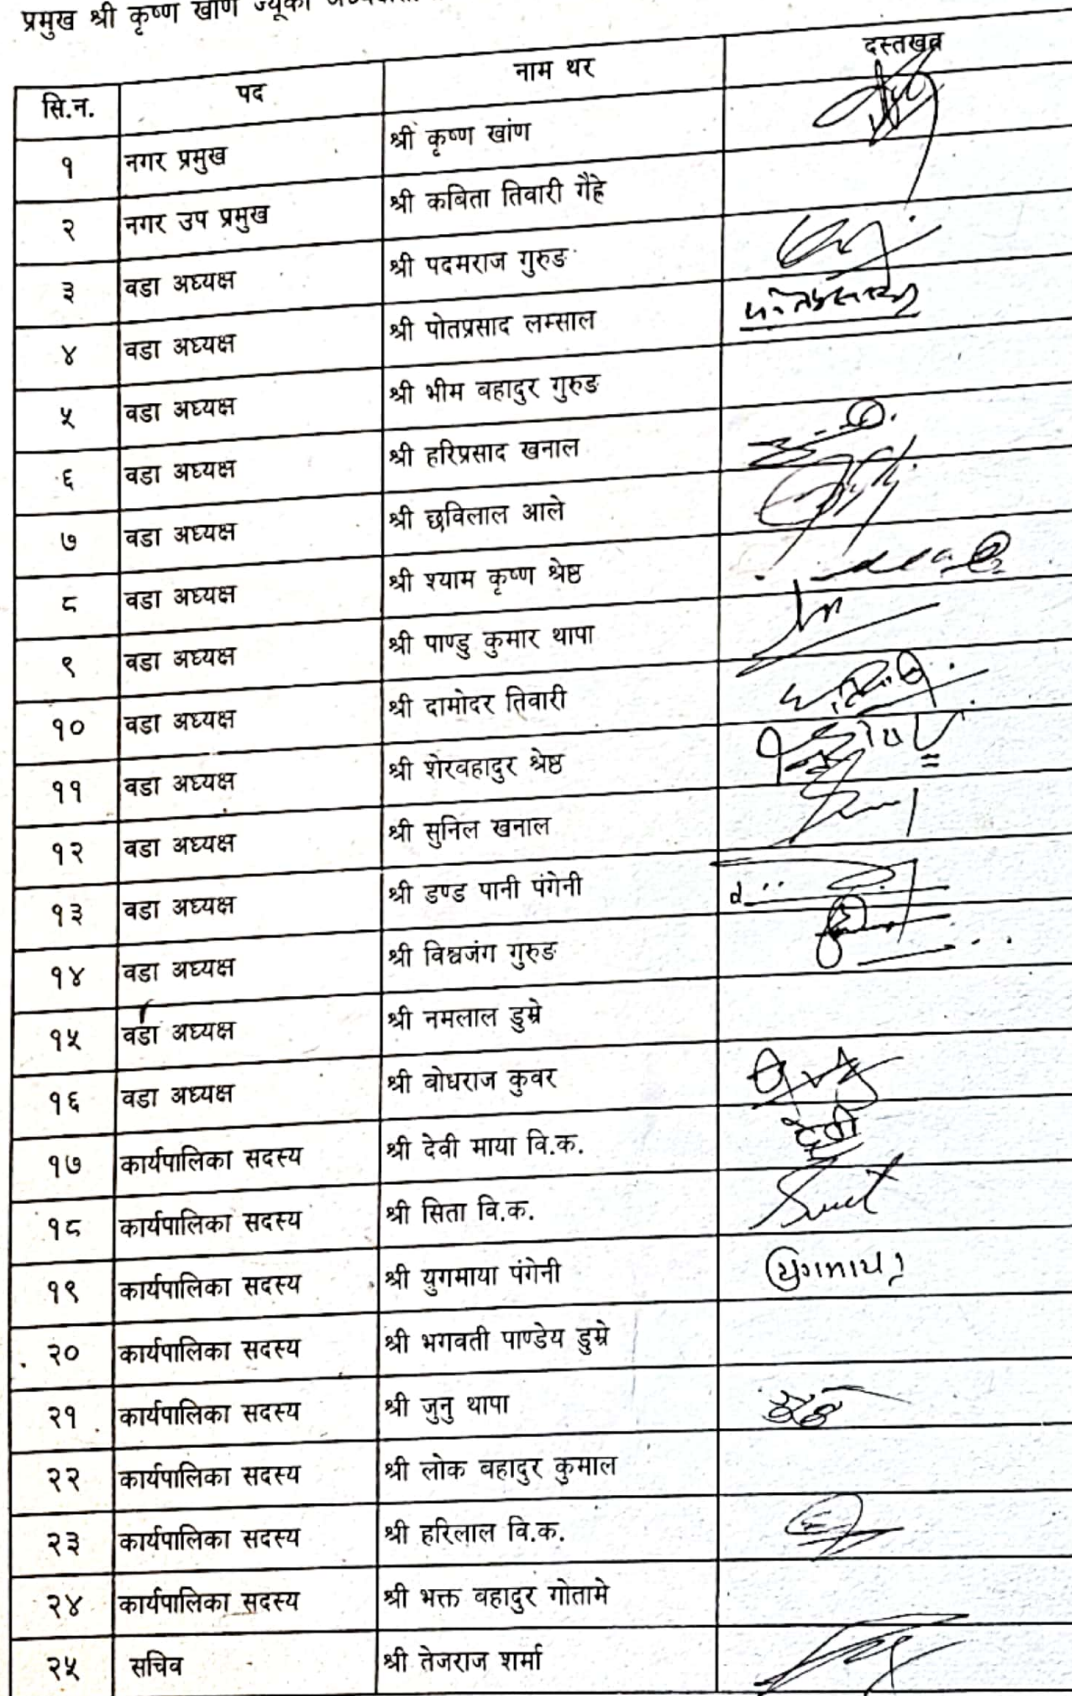 प्रमुख श्री कृष्ण खाण ज्यूको
सि.न. पद नाम थर दस्तखत
१ नगर प्रमुख श्री कृष्ण खांण
२ नगर उप प्रमुख श्री कबिता तिवारी गैह्रे
३ वडा अध्यक्ष श्री पदमराज गुरुङ
४ वडा अध्यक्ष श्री पोतप्रसाद लम्साल
५ वडा अध्यक्ष श्री भीम बहादुर गुरुङ
६ वडा अध्यक्ष श्री हरिप्रसाद खनाल
७ वडा अध्यक्ष श्री छविलाल आले
८ वडा अध्यक्ष श्री श्याम कृष्ण श्रेष्ठ
९ वडा अध्यक्ष श्री पाण्डु कुमार थापा
१० वडा अध्यक्ष श्री दामोदर तिवारी
११ वडा अध्यक्ष श्री शेरवहादुर श्रेष्ठ
१२ वडा अध्यक्ष श्री सुनिल खनाल
१३ वडा अध्यक्ष श्री डण्ड पानी पंगेनी
१४ वडा अध्यक्ष श्री विश्वजंग गुरुङ
१५ वडा अध्यक्ष श्री नमलाल डुम्रे
१६ वडा अध्यक्ष श्री वोधराज कुवर
१७ कार्यपालिका सदस्य श्री देवी माया वि.क. देवी
१८ कार्यपालिका सदस्य श्री सिता वि.क.
१९ कार्यपालिका सदस्य श्री युगमाया पंगेनी युगमाया
२० कार्यपालिका सदस्य श्री भगवती पाण्डेय डुम्रे
२१ कार्यपालिका सदस्य श्री जुनु थापा
२२ कार्यपालिका सदस्य श्री लोक बहादुर कुमाल
२३ कार्यपालिका सदस्य श्री हरिलाल वि.क.
२४ कार्यपालिका सदस्य श्री भक्त बहादुर गोतामे
२५ सचिव श्री तेजराज शर्मा